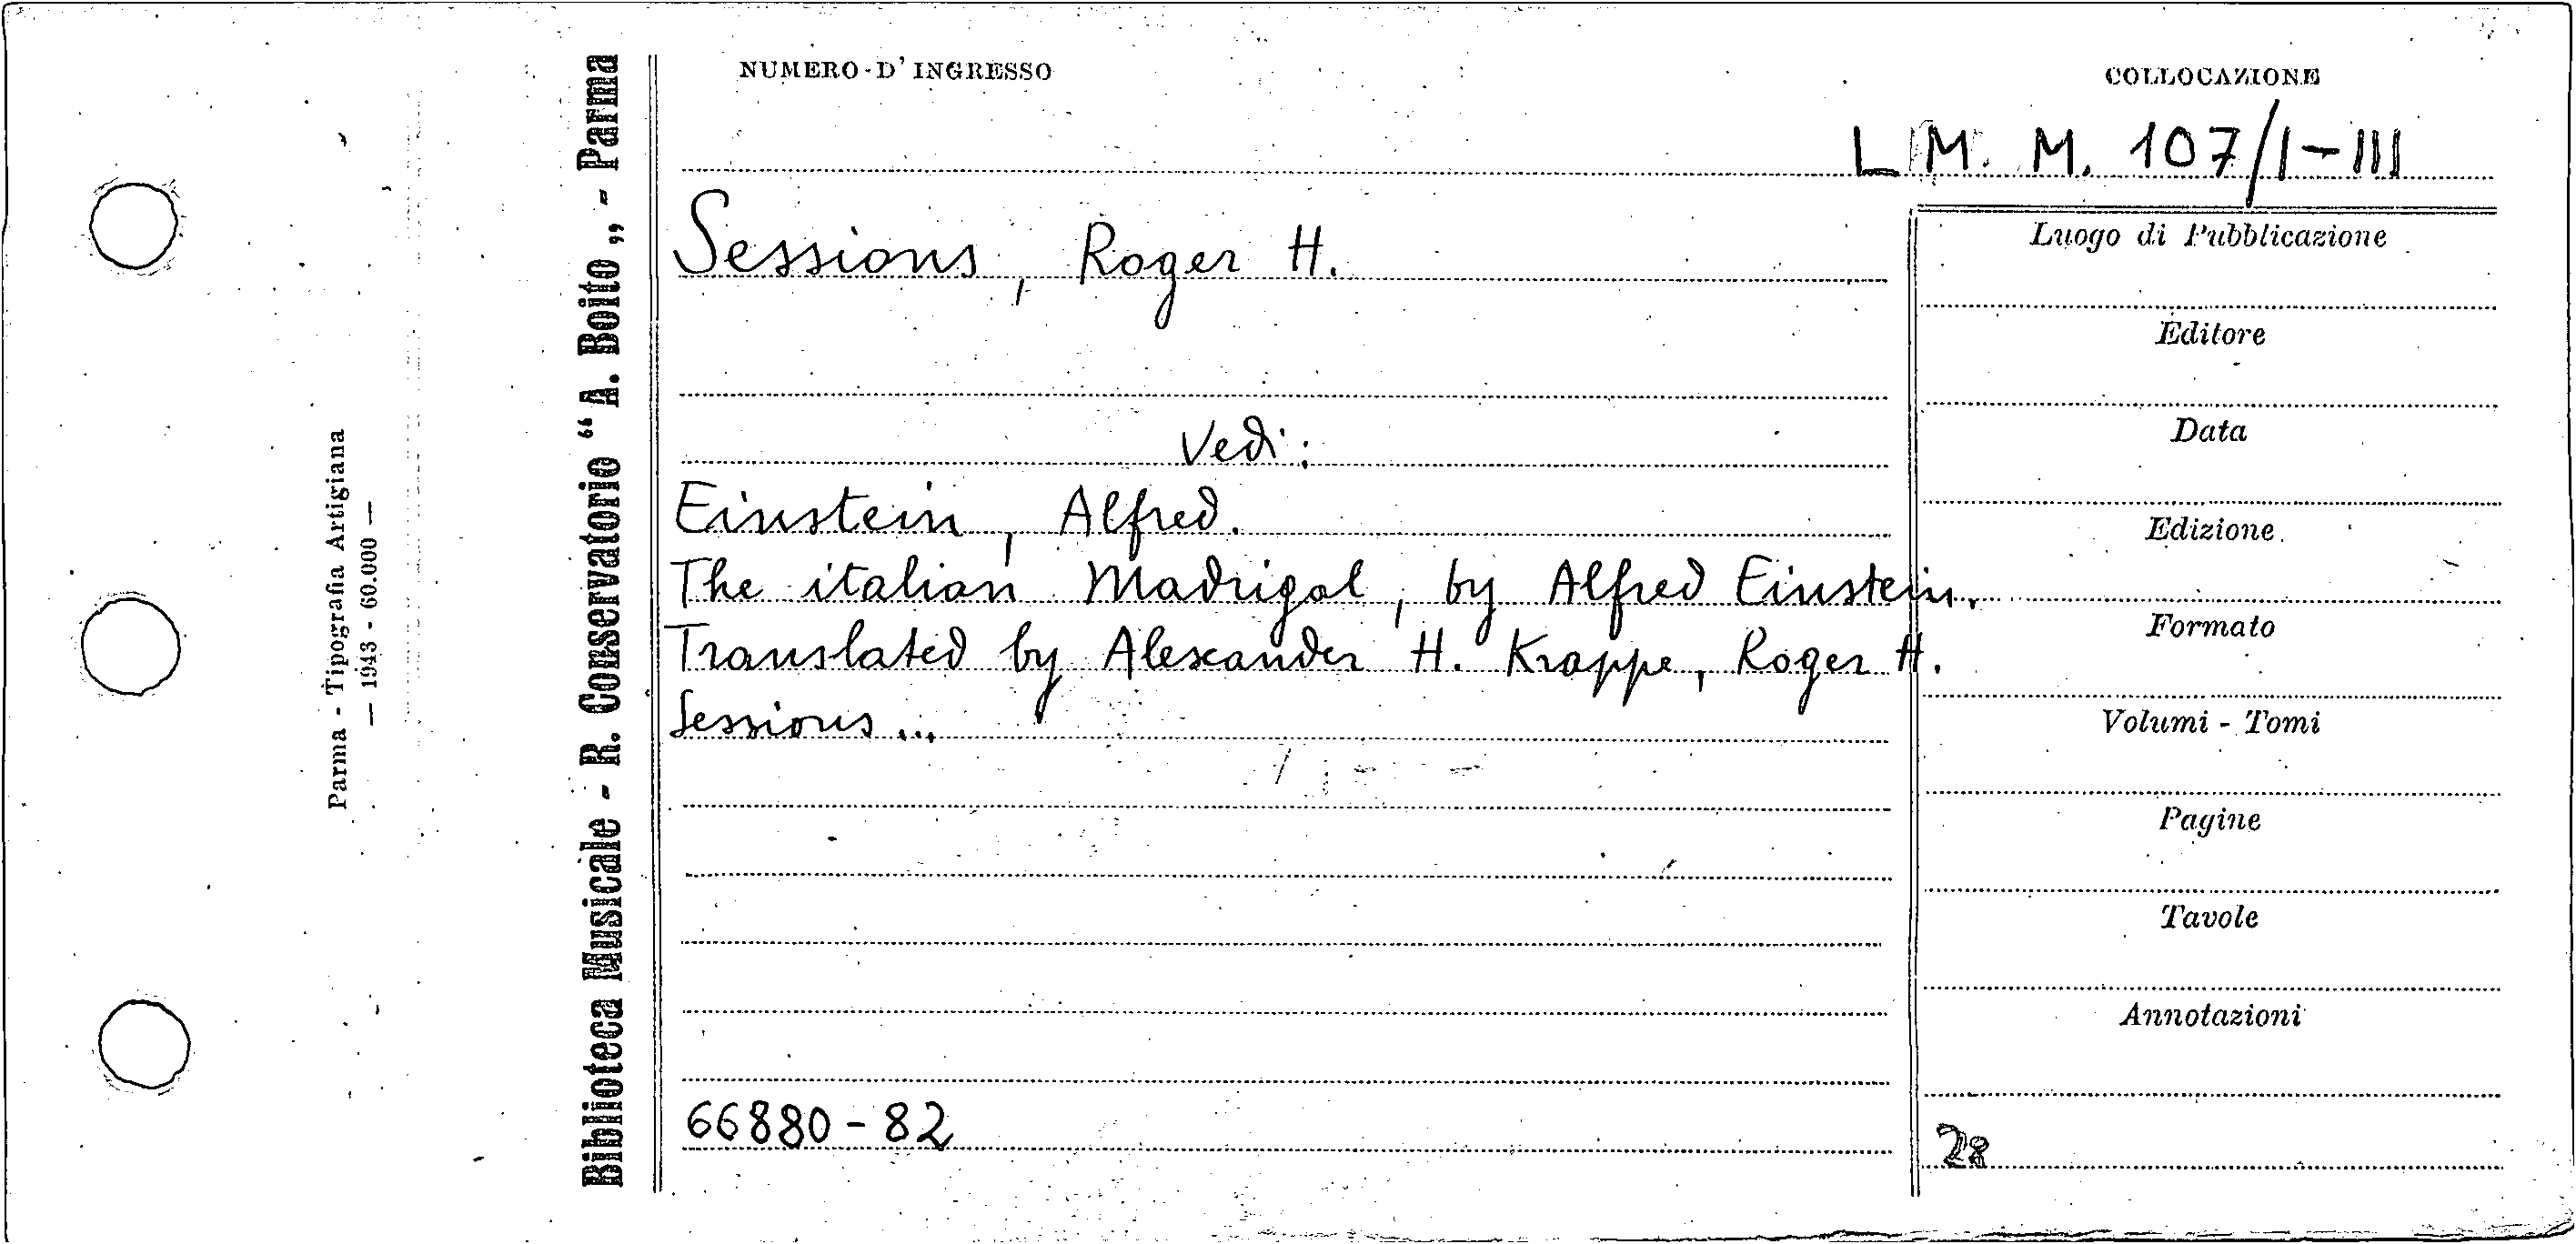 NUMERO D'INGRESSO
COLLOCAZIONE
L M. M. 107/I-III
Sessions, Roger H.
Vedi:
Einstein, Alfred.
The italian Madrigal, by Alfred Einstein.
Translated by Alexander H. Krappe, Roger H.
Sessions...
66880-82
Luogo di Pubblicazione
Editore
Data
Edizione
Formato
Volumi - Tomi
Pagine
Tavole
Annotazioni
28
Biblioteca Musicale - R. Conservatorio "A. Boito„ - Parma
Parma - Tipografia Artigiana
— 1943 - 60.000 —